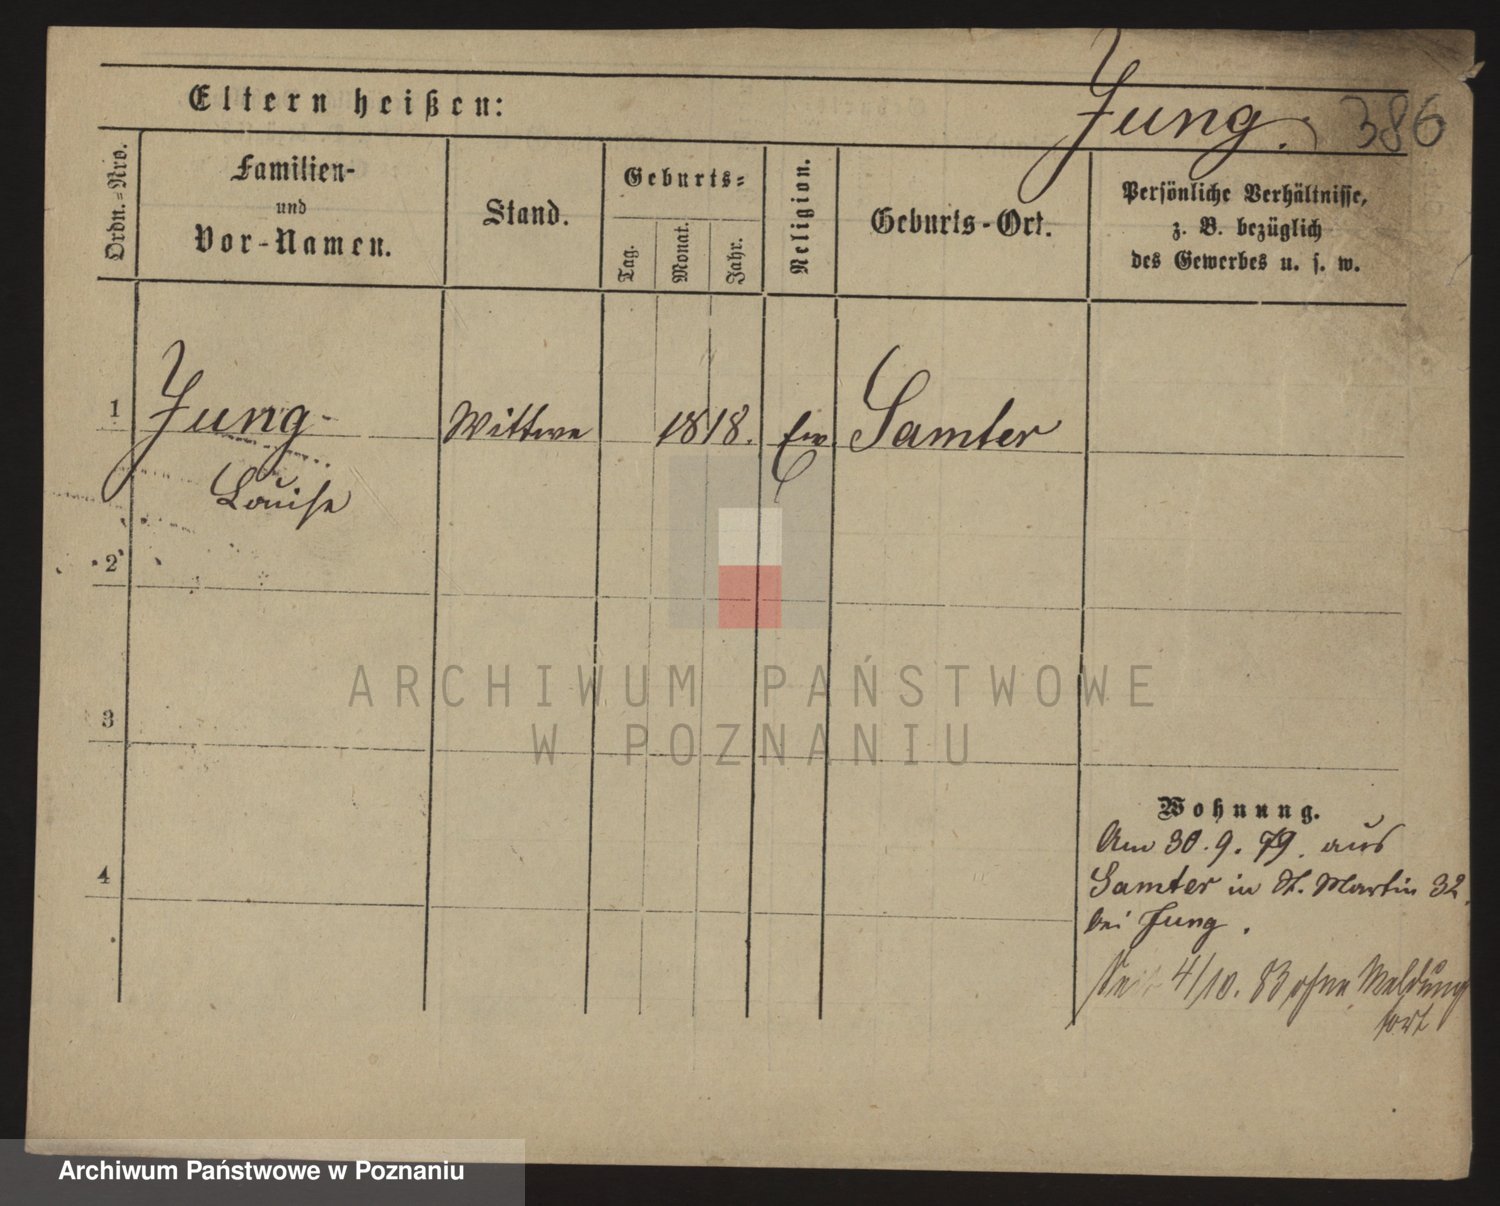 Jung. 386
Eltern heißen:
Ordn.-Nro.
Familien-
und
Vor-Namen.
Stand.
Geburts-
Tag.
Monat.
Jahr.
Religion.
Geburts-Ort.
Persönliche Verhältnisse,
z. B. bezüglich
des Gewerbes u. s. w.
1 Jung Wittwe 1818. Ev Samter
Louise
2
3
4
Wohnung.
Am 30.9.79. aus
Samter in St. Martin 32.
bei Jung.
Seit 4/10.83 ohne Meldung
fort
ARCHIWUM PAŃSTWOWE
W POZNANIU
Archiwum Państwowe w Poznaniu